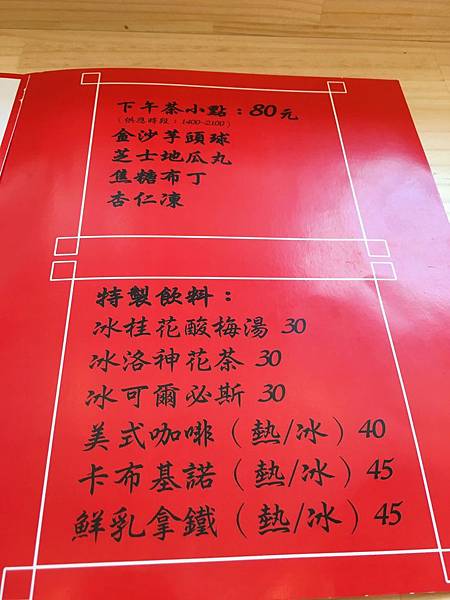 下午茶小點：80元
（供應時段：1400~2100）
金沙芋頭球
芝士地瓜丸
焦糖布丁
杏仁凍
特製飲料：
冰桂花酸梅湯 30
冰洛神花茶 30
冰可爾必斯 30
美式咖啡（熱/冰）40
卡布基諾（熱/冰）45
鮮乳拿鐵（熱/冰）45